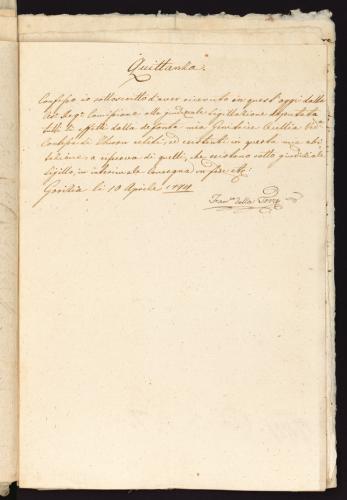 Quittanza.
Confesso io sottoscritto d'aver ricevuto in quest'oggi dalla
Ces: Reg: Comissione alla giudiziale Sigillazione deputata
tutti gli effetti dalla defonta mia Genitrice Cecilia Ved:
Contessa di Thurn relitti, ed esistenti in questa mia abi-
tazione, a riserva di quelli, che esistono sotto giudiziale
sigillo, in interinale consegna in fede etc:
Gorizia li 10 Aprile 1794
Fran:co della Torre